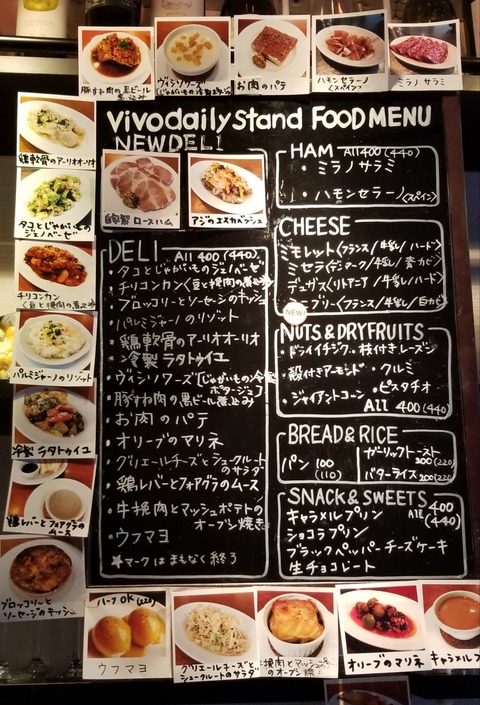 豚すね肉の黒ビール
煮込み
ヴィシソワーズ
(じゃがいもの冷製ポタージュ)
お肉のパテ
ハモンセラーノ
(スペイン)
ミラノサラミ
鶏軟骨のアーリオオーリオ
タコとじゃがいもの
ジェノベーゼ
チリコンカン
(豆と挽肉の煮込み)
パルミジャーノのリゾット
冷製ラタトゥイユ
鶏レバーとフォアグラの
ムース
ブロッコリーと
ソーセージのキッシュ
vivodaily stand FOOD MENU
NEW DELI
自家製 ロースハム
アジのエスカベッシュ
DELI All 400 (440)
・タコとじゃがいものジェノベーゼ
・チリコンカン(豆と挽肉の煮込み)
・ブロッコリーとソーセージのキッシュ
・パルミジャーノのリゾット
・鶏軟骨のアーリオオーリオ
・冷製ラタトゥイユ
・ヴィシソワーズ(じゃがいもの冷製
ポタージュ)
・豚すね肉の黒ビール煮込み
・お肉のパテ
・オリーブのマリネ
・グリュエールチーズとシュークルート
のサラダ
・鶏レバーとフォアグラのムース
・牛挽肉とマッシュポテトの
オーブン焼き
・ウフマヨ
★マークはまもなく終了
HAM All 400 (440)
・ミラノサラミ
・ハモンセラーノ(スペイン)
CHEESE
ミモレット(フランス/牛乳/ハード)
ミセラ(デンマーク/牛乳/青カビ)
デュガス(リトアニア/牛乳/ハード)
ブリー(フランス/牛乳/白カビ)
NEW!
NUTS & DRYFRUITS
・ドライイチジク・枝付きレーズン
・殻付きアーモンド・クルミ
・ピスタチオ
・ジャイアントコーン
All 400 (440)
BREAD & RICE
パン 100
(110)
ガーリックトースト
200 (220)
バターライス 200 (220)
SNACK & SWEETS
All 400
(440)
キャラメルプリン
ショコラプリン
ブラックペッパーチーズケーキ
生チョコレート
ハーフOK (220)
ウフマヨ
グリュエールチーズと
シュークルートのサラダ
牛挽肉とマッシュポテト
のオーブン焼き
オリーブのマリネ
キャラメルプ